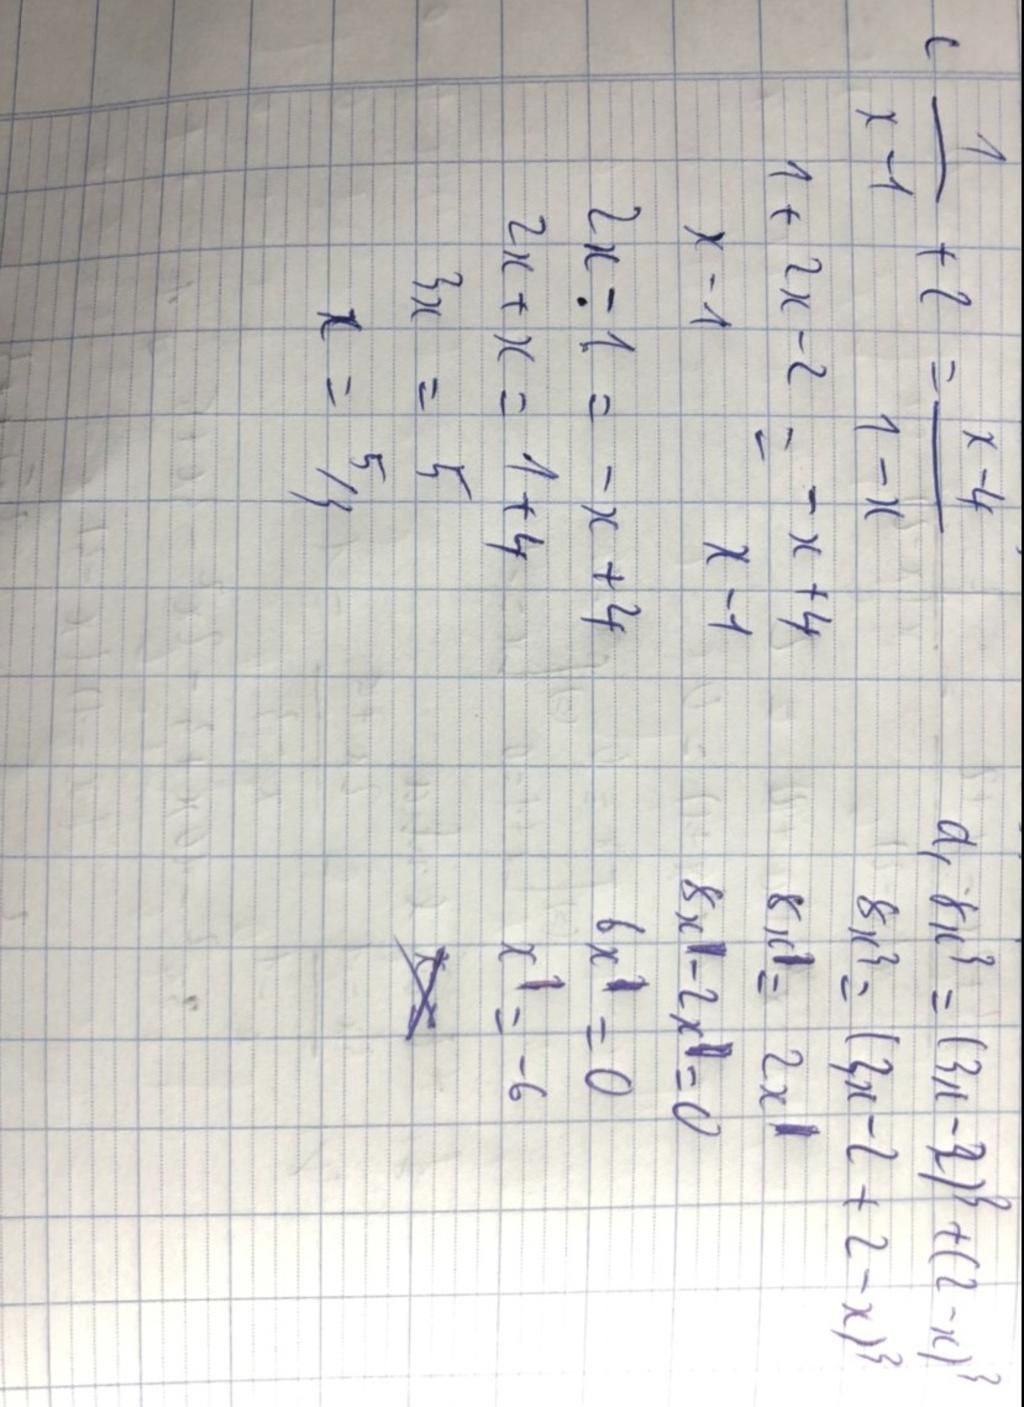 c 1/(x-1) + 2 = (x-4)/(1-x)
(1+2x-2)/(x-1) = (-x+4)/(x-1)
2x-1 = -x+4
2x+x = 1+4
3x = 5
x = 5/3
d, 8x³ = (3x-2)³ + (2-x)³
8x³ = (3x-2+2-x)³
8x = 2x
8x-2x=0
6x = 0
x = -6